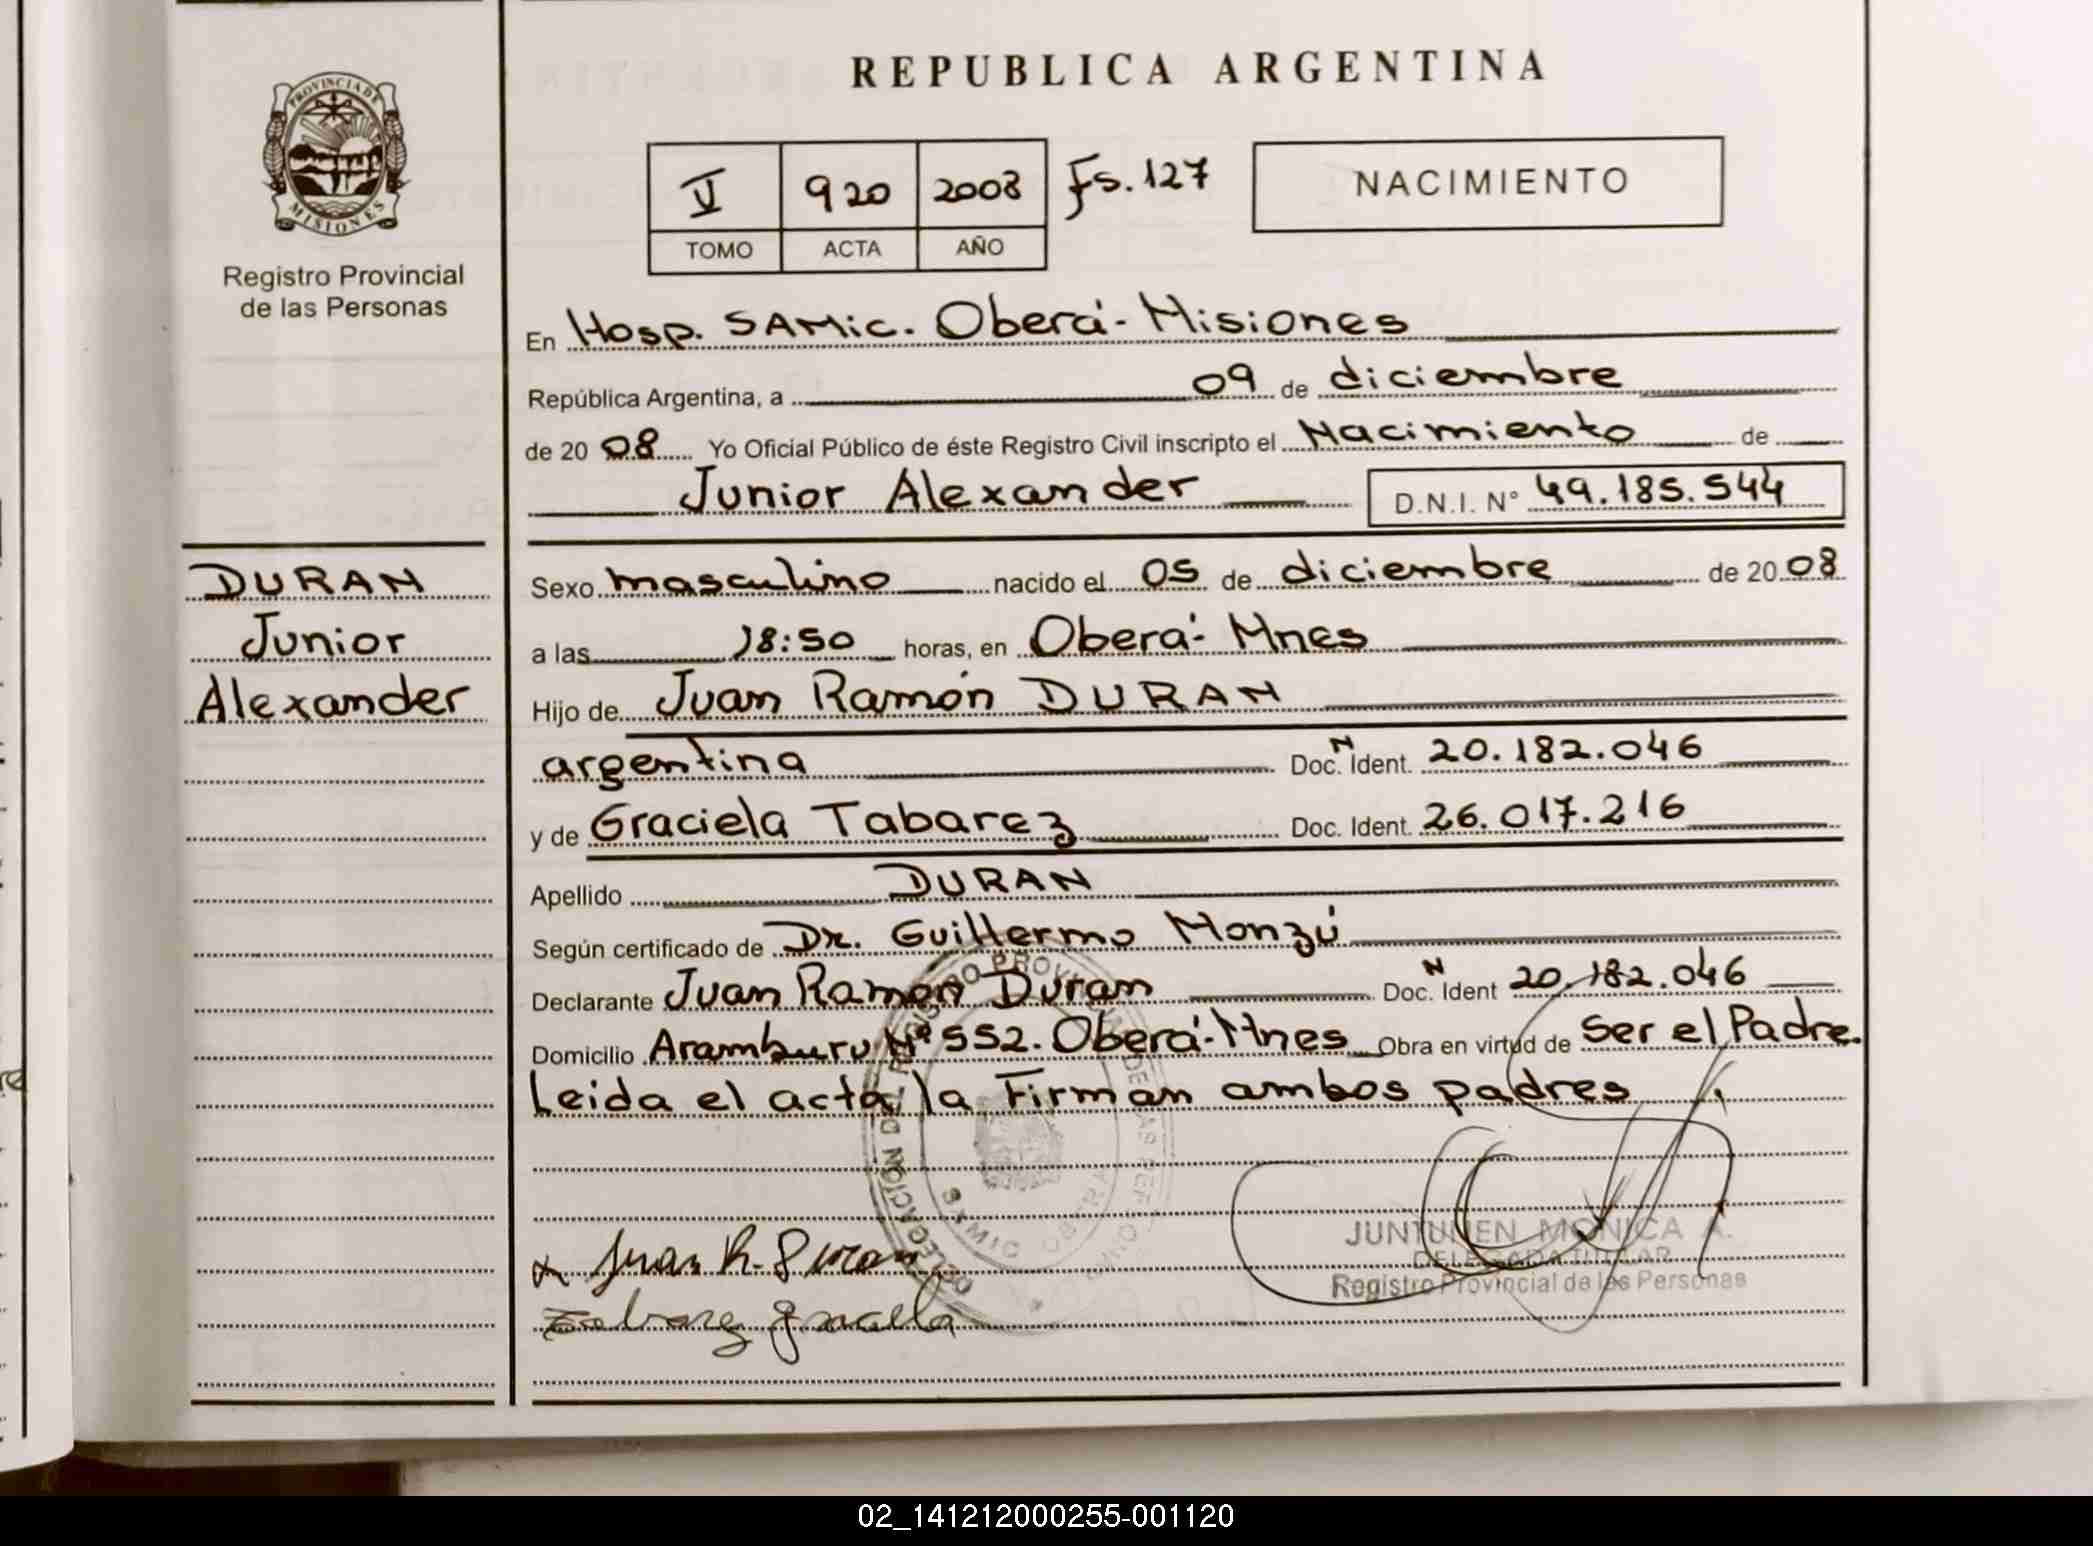 REPUBLICA ARGENTINA
PROVINCIA DE MISIONES
Registro Provincial
de las Personas
V 920 2008 Fs. 127
TOMO ACTA AÑO
NACIMIENTO
En Hosp. SAMic. Oberá - Misiones
República Argentina, a 09 de diciembre
de 20 08 Yo Oficial Público de éste Registro Civil inscripto el Nacimiento de
Junior Alexander D.N.I. N° 49.185.544
DURAN
Junior
Alexander
Sexo masculino nacido el 05 de diciembre de 20 08
a las 18:50 horas, en Oberá - Mnes
Hijo de Juan Ramón DURAN
argentina Doc. N Ident. 20.182.046
y de Graciela Tabarez Doc. Ident. 26.017.216
Apellido DURAN
Según certificado de Dr. Guillermo Monzú
Declarante Juan Ramón Duran Doc. N Ident 20.182.046
Domicilio Aramburu Nº 552. Oberá - Mnes Obra en virtud de Ser el Padre.
Leida el acta, la Firman ambos padres
Juan R. Duran
Tabarez Graciela
DELEGACION DEL REGISTRO PROVINCIAL DE LAS PERSONAS
SAMIC OBERA
JUNTUNEN MONICA A.
DELEGADA TITULAR
Registro Provincial de las Personas
02_141212000255-001120